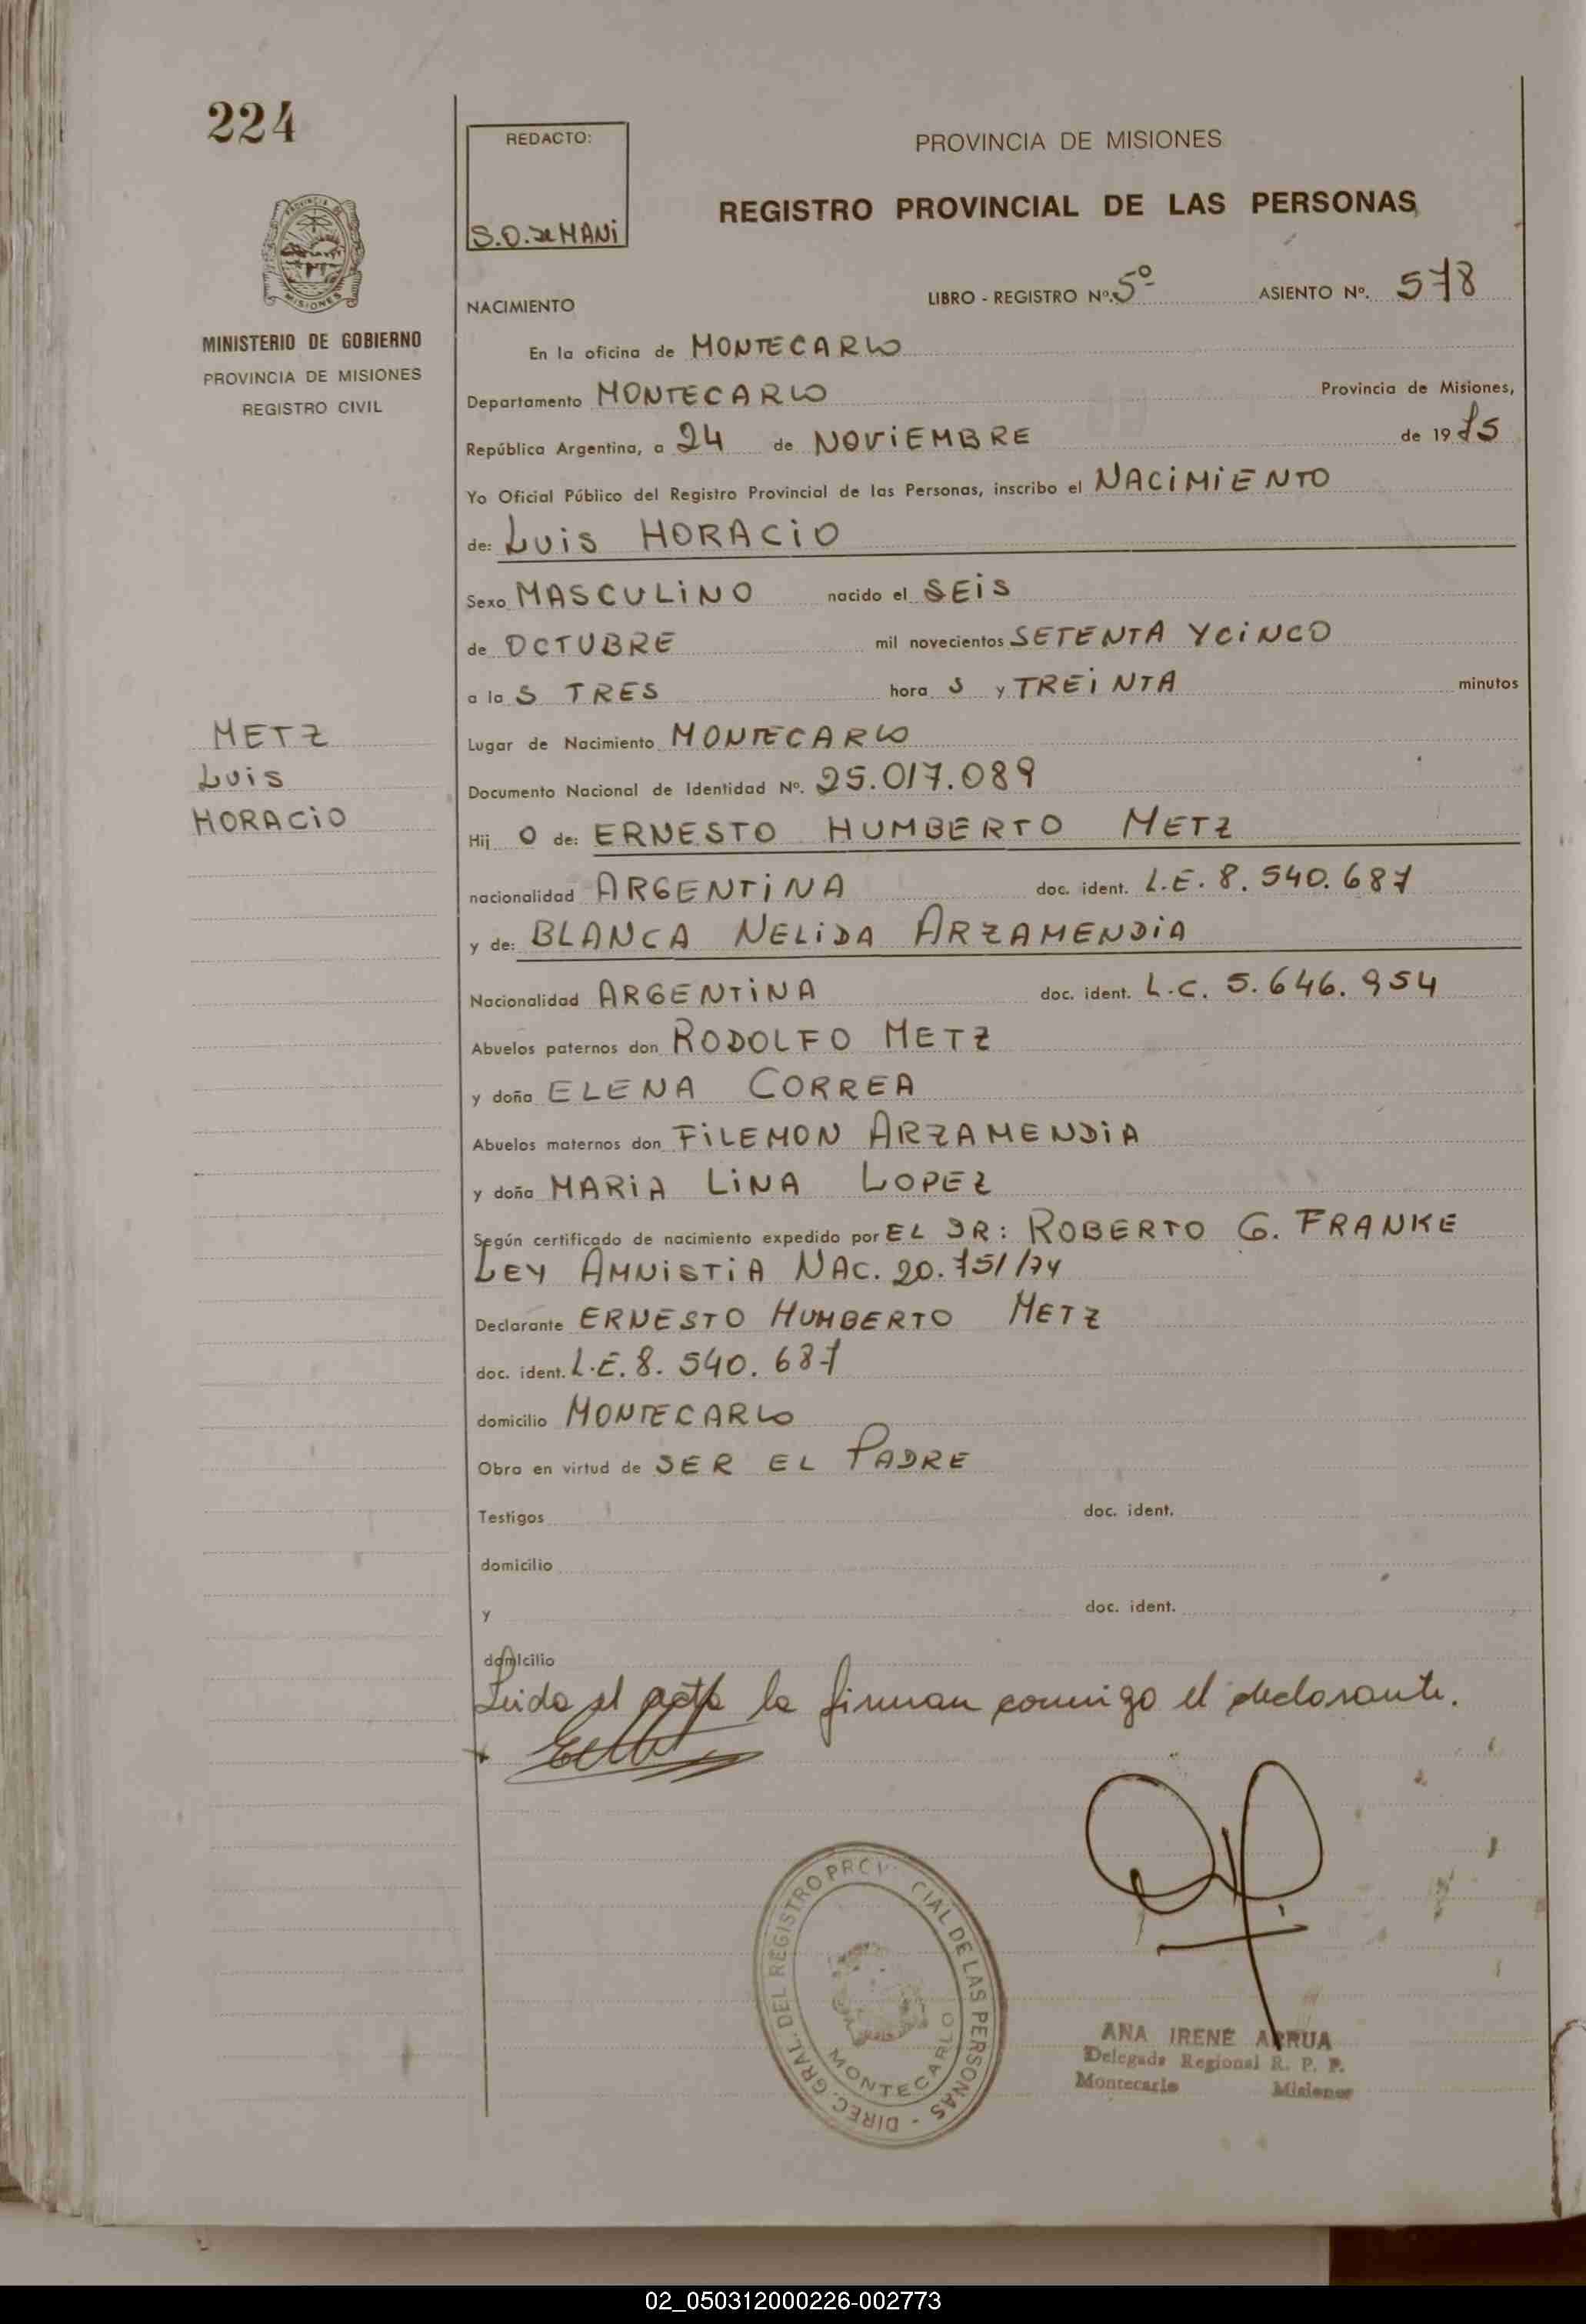 224
REDACTO:
S.O. de MANi
PROVINCIA DE MISIONES
REGISTRO PROVINCIAL DE LAS PERSONAS
PROVINCIA DE
MISIONES
MINISTERIO DE GOBIERNO
PROVINCIA DE MISIONES
REGISTRO CIVIL
NACIMIENTO
LIBRO - REGISTRO Nº. 5º ASIENTO Nº. 578
En la oficina de MONTECARLO
Departamento MONTECARLO Provincia de Misiones,
República Argentina, a 24 de NOViEMBRE de 1975
Yo Oficial Público del Registro Provincial de las Personas, inscribo el NACiMiENTO
de: LUiS HORACiO
Sexo MASCULiNO nacido el SEiS
de OCTUBRE mil novecientos SETENTA Y CiNCO
a la S TRES hora S y TREiNTA minutos
Lugar de Nacimiento MONTECARLO
Documento Nacional de Identidad Nº. 25.017.089
Hij O de: ERNESTO HUMBERTO METZ
nacionalidad ARGENTiNA doc. ident. L.E. 8.540.687
y de: BLANCA NELiDA ARZAMENDiA
Nacionalidad ARGENTiNA doc. ident. L.C. 5.646.954
Abuelos paternos don RODOLFO METZ
y doña ELENA CORREA
Abuelos maternos don FiLEMON ARZAMENDiA
y doña MARiA LiNA LOPEZ
Según certificado de nacimiento expedido por EL DR: ROBERTO G. FRANKE
LEY AMNiSTiA NAC. 20.751/74
Declarante ERNESTO HUMBERTO METZ
doc. ident. L.E. 8.540.687
domicilio MONTECARLO
Obra en virtud de SER EL PADRE
Testigos doc. ident.
domicilio
y doc. ident.
domicilio
Leida el acta la firman conmigo el declarante.
METZ
LUiS
HORACiO
DIREC. GRAL. DEL REGISTRO PROV CIAL DE LAS PERSONAS -
MONTECARLO
ANA IRENE ARRUA
Delegada Regional R. P. P.
Montecarlo Misiones
02_050312000226-002773